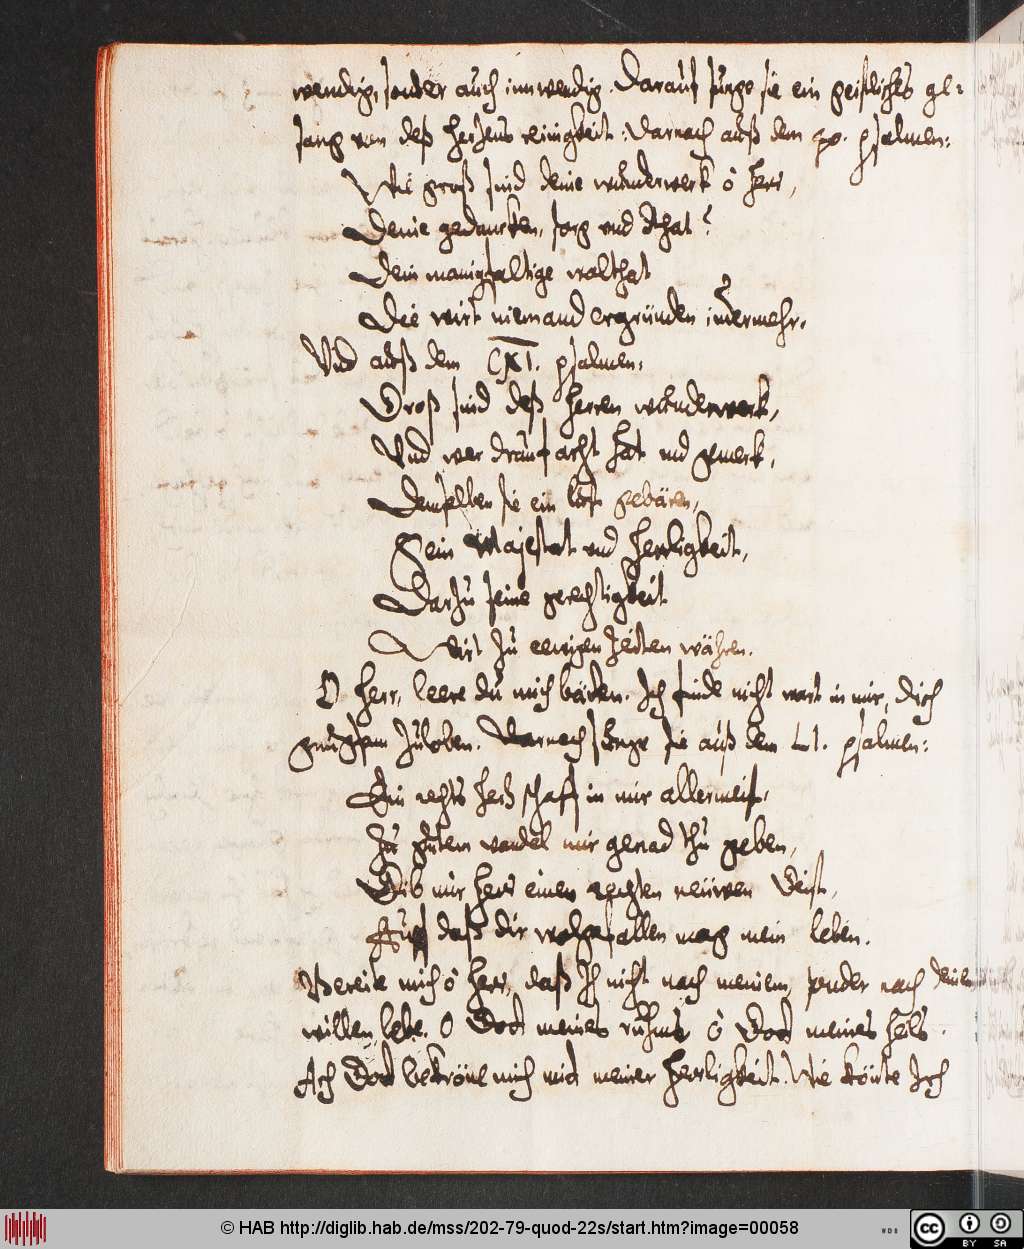 wendig, sonder auch innwendig. Darauf sunge sie ein geistliches ge-
sang von deß Hertzens reinigkeit: Darnach auß dem psalmen:
Wie groß sind deine wunderwerk ô Herr,
Deine gedancken, sorg und that?
Dein manigfaltige wolthat
Die wirt niemand ergründen immermehr.
Und auß dem CXI. psalmen:
Groß sind deß Herren wunderwerk,
Und wer drauf acht hat und gemerk,
Demselben sie ein lust gebären,
Sein Majestet und Herrligkeit,
Darzu seine gerechtigkeit
Wirt zu ewigen zeiten währen.
O Herr, leere du mich bäten. Ich finde nicht wort in mir, dich
gnugsam zuloben. Darnach sunge sie auß dem LI. psalmen:
Ein rechts Hertz schaff in mir allermeist,
Zu gutem wandel mir genad thu geben,
Gib mir Herr einen rechten neüwen Geist,
Auff daß dir wolgefallen mag mein leben.
Bereite mich ô Herr, daß Ich nicht nach meinem, sonder nach deinem
willen lebe. O Gott meines ruhms ô Gott meines heils.
Ach Gott bekröne mich mit meiner Herrligkeit. Wie könte Ich
© HAB http://diglib.hab.de/mss/202-79-quod-22s/start.htm?image=00058
WDB
CC BY SA